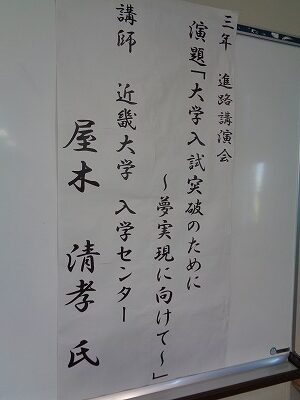 三年 進路講演会
演題「大学入試突破のために
～夢実現に向けて～」
講師 近畿大学 入学センター
屋木 清孝 氏